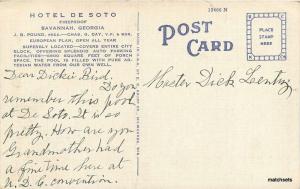 HOTEL DE SOTO
FIREPROOF
SAVANNAH, GEORGIA
J. B. POUND, PRES.—CHAS. G. DAY, V.P. & MGR.
EUROPEAN PLAN, OPEN ALL YEAR
SUPERBLY LOCATED—COVERS ENTIRE CITY
BLOCK, OFFERING SPLENDID AUTO PARKING
FACILITIES—5800 SQUARE FEET OF PORCH
SPACE. THE POOL IS FILLED WITH PURE AR-
TESIAN WATER FROM OUR OWN WELL.
13666 N
POST
CARD
PLACE
STAMP
HERE
Dear Dickie Bird,
Do you
remember this pool
at De Soto. It is so
pretty. How are you
Grandmother had
a fine time here at
U.D.C. convention.
Mister Dick Lentz,
matchsets